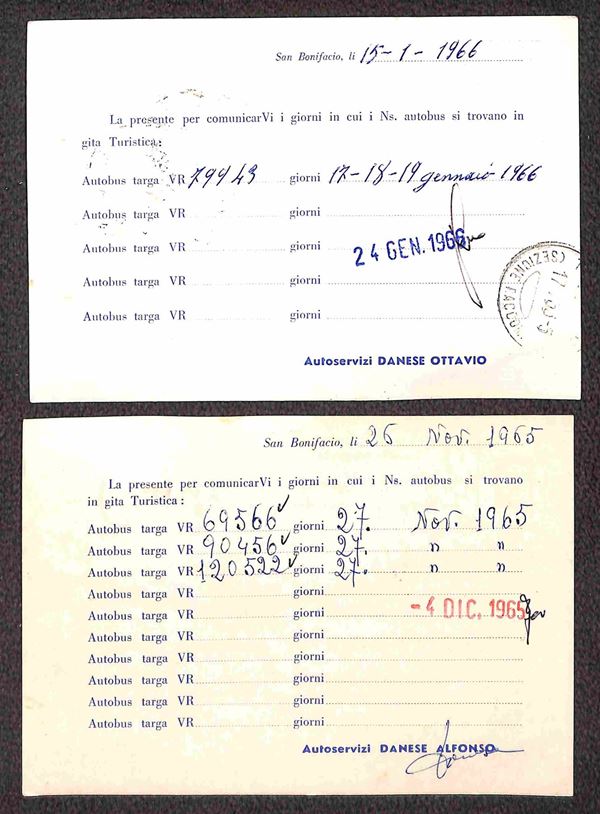 San Bonifacio, li 15-1-1966
La presente per comunicarVi i giorni in cui i Ns. autobus si trovano in
gita Turistica:
Autobus targa VR 79943 giorni 17-18-19 gennaio 1966
Autobus targa VR giorni
Autobus targa VR giorni
24 GEN. 1966
Autobus targa VR giorni
Autobus targa VR giorni
(SEZIONE
Autoservizi DANESE OTTAVIO
San Bonifacio, li 26 Nov. 1965
La presente per comunicarVi i giorni in cui i Ns. autobus si trovano
in gita Turistica:
Autobus targa VR 69566 giorni 27. Nov. 1965
Autobus targa VR 90456 giorni 27. " "
Autobus targa VR 120522 giorni 27. " "
Autobus targa VR giorni
- 4 DIC. 1965
Autobus targa VR giorni
Autobus targa VR giorni
Autobus targa VR giorni
Autobus targa VR giorni
Autobus targa VR giorni
Autobus targa VR giorni
Autoservizi DANESE ALFONSO